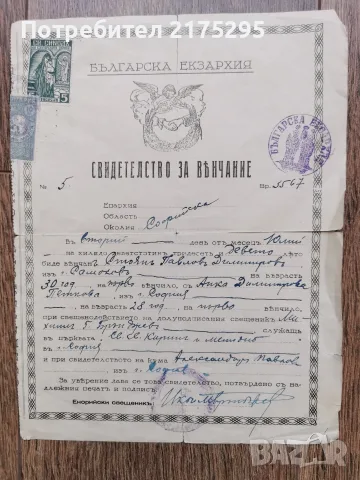 Потребител 2175295
СВ. СИНОДЪ
5
БЪЛГАРСКА ЕКЗАРХИЯ
БЪЛГАРСКА
СВИДЕТЕЛСТВО ЗА ВѢНЧАНИЕ
№ 5 Пр. 5567
Епархия
Область
Околия Софийска
Въ втория день отъ месецъ Юлий
въ хилядо деветстотинъ тридесеть и девето лѣто
биде вѣнчанъ Стоянъ Павловъ Димитровъ
изъ г. Самоковъ на възрасть
30 год. на първо вѣнчило, съ Анка Димитрова
Петкова изъ г. София
на възрасть 28 год. на първо вѣнчило,
при свещенодействието на долуподписания свещеникъ
служаща
въ църквата Св. Св. Кирилъ и Методий въ
г. София
и при свидетелството на кума Александъръ Павловъ
изъ г. София
За уверение дава се това свидетелство, потвърдено съ над-
лежния печатъ и подписъ.
Енорийски свещеникъ:
BAZAR